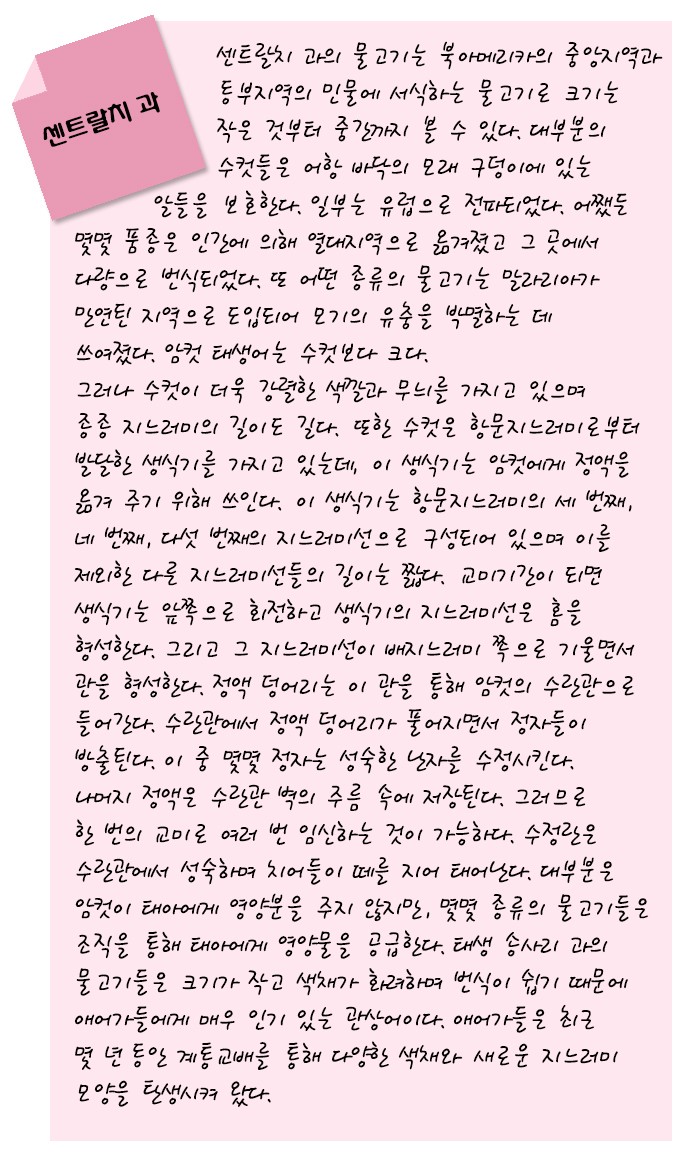 센트랄치 과
센트랄치 과의 물고기는 북아메리카의 중앙지역과
동부지역의 민물에 서식하는 물고기로 크기는
작은 것부터 중간까지 볼 수 있다. 대부분의
수컷들은 어항 바닥의 모래 구덩이에 있는
알들을 보호한다. 일부는 유럽으로 전파되었다. 어쨌든
몇몇 품종은 인간에 의해 열대지역으로 옮겨졌고 그 곳에서
다량으로 번식되었다. 또 어떤 종류의 물고기는 말라리아가
만연된 지역으로 도입되어 모기의 유충을 박멸하는 데
쓰여졌다. 암컷 태생어는 수컷보다 크다.
그러나 수컷이 더욱 강렬한 색깔과 무늬를 가지고 있으며
종종 지느러미의 길이도 길다. 또한 수컷은 항문지느러미로부터
발달한 생식기를 가지고 있는데, 이 생식기는 암컷에게 정액을
옮겨 주기 위해 쓰인다. 이 생식기는 항문지느러미의 세 번째,
네 번째, 다섯 번째의 지느러미선으로 구성되어 있으며 이를
제외한 다른 지느러미선들의 길이는 짧다. 교미기간이 되면
생식기는 앞쪽으로 회전하고 생식기의 지느러미선은 홈을
형성한다. 그리고 그 지느러미선이 배지느러미 쪽으로 기울면서
관을 형성한다. 정액 덩어리는 이 관을 통해 암컷의 수란관으로
들어간다. 수란관에서 정액 덩어리가 풀어지면서 정자들이
방출된다. 이 중 몇몇 정자는 성숙한 난자를 수정시킨다.
나머지 정액은 수란관 벽의 주름 속에 저장된다. 그러므로
한 번의 교미로 여러 번 임신하는 것이 가능하다. 수정란은
수란관에서 성숙하며 치어들이 떼를 지어 태어난다. 대부분은
암컷이 태아에게 영양분을 주지 않지만, 몇몇 종류의 물고기들은
조직을 통해 태아에게 영양물을 공급한다. 태생 송사리 과의
물고기들은 크기가 작고 색채가 화려하며 번식이 쉽기 때문에
애어가들에게 매우 인기 있는 관상어이다. 애어가들은 최근
몇 년 동안 계통교배를 통해 다양한 색채와 새로운 지느러미
모양을 탄생시켜 왔다.